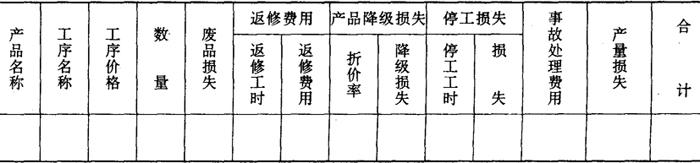 产品名称
工序名称
工序价格
数量
废品损失
返修费用
返修工时
返修费用
产品降级损失
折价率
降级损失
停工损失
停工工时
损失
事故处理费用
产量损失
合计